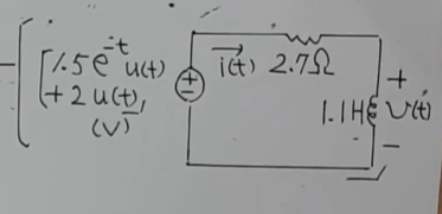 [1.5e^-t u(t)
+ 2 u(t),
(V)
+
−
i(t) 2.7Ω
+
1.1H v(t)
−